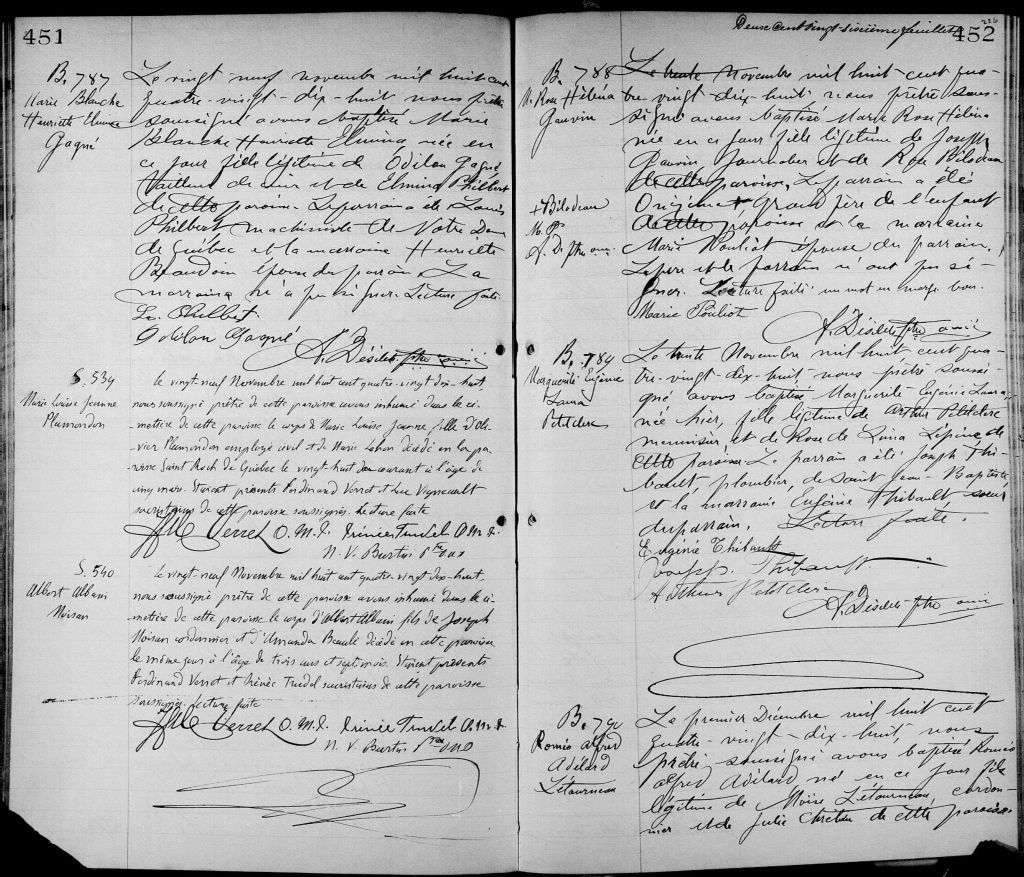 451
B. 787
Marie Blanche
Henriette Elmina
Gagné
Le vingt neuf novembre mil huit cent
quatre-vingt-dix-huit nous prêtre
soussigné avons baptisé Marie
Blanche Henriette Elmina née en
ce jour fille légitime de Odilon Gagné
tailleur de cuir et de Elmina Philbert
de cette paroisse. Le parrain a été Louis
Philbert machiniste de Notre Dame
de Québec et la marraine Henriette
Beaudoin épouse du parrain. La
marraine n'a pu signer. Lecture faite.
Ls. Philbert
Odilon Gagné
A. Désilets ptre omi
S. 539
Marie Louise Jeanne
Plamondon
Le vingt neuf Novembre mil huit cent quatre-vingt dix-huit,
nous soussigné prêtre de cette paroisse avons inhumé dans le ci-
metière de cette paroisse le corps de Marie Louise Jeanne fille d'Oli-
vier Plamondon employé civil et de Marie décédé en la pa-
roisse Saint Roch de Québec le vingt huit du courant à l'âge de
cinq mois. Etaient présents Ferdinand Verret et Luc Vigneault
sacristains de cette paroisse soussignés. Lecture faite
Verret O.M.I. Irénée Trudel O.M.I.
N. V. Burtin Ptre OMI
S. 540
Albert Albani
Moisan
Le vingt-neuf Novembre mil huit cent quatre-vingt dix-huit,
nous soussigné prêtre de cette paroisse avons inhumé dans le ci-
metière de cette paroisse le corps d'Albert Albani fils de Joseph
Moisan cordonnier et d'Amanda Beaulé décédé en cette paroisse
le même jour à l'âge de trois ans et sept mois. Etaient présents
Ferdinand Verret et Irénée Trudel sacristains de cette paroisse
soussignés. Lecture faite
Verret O.M.I. Irénée Trudel O.M.I.
N. V. Burtin Ptre OMI
Deux cent vingt-sixième feuillet
226
452
B. 788
M. Rose Héléna
Gauvin
Le trente Novembre mil huit-cent qua-
tre-vingt-dix-huit nous prêtre sous-
signé avons baptisé Marie Rose Héléna
née en ce jour fille légitime de Joseph
Gauvin journalier et de Rose Bilodeau
de cette paroisse. Le parrain a été
Onézime +, Grand père de l'enfant
de cette paroisse et la marraine
Marie Pouliot épouse du parrain.
Le père et le parrain n'ont pu si-
gner. Lecture faite un mot en marge bon.
Marie Pouliot
A. Désilets ptre omi
+ Bilodeau
M. P.
A. D. ptre omi
B. 789
Marguerite Eugénie
Laura
Petitclerc
Le trente Novembre mil huit cent qua-
tre-vingt-dix-huit, nous prêtre soussi-
gné avons baptisé Marguerite Eugénie Laura,
née hier, fille légitime de Arthur Petitclerc
menuisier et de Rose de Lima Lépine de
cette paroisse. Le parrain a été Joseph Thi-
bault, plombier, de Saint Jean-Baptiste
et la marraine Eugénie Thibault soeur
du parrain. Lecture faite.
Eugénie Thibault
Joseph Thibault
Arthur Petitclerc
A. Désilets ptre omi
B. 790
Roméo Alfred
Adélard
Létourneau
Le premier Décembre mil huit cent
quatre-vingt-dix-huit, nous
prêtre soussigné avons baptisé Roméo
Alfred Adélard né en ce jour fils
légitime de Moïse Létourneau, cordon-
nier et de Julie Chrétien de cette paroisse.